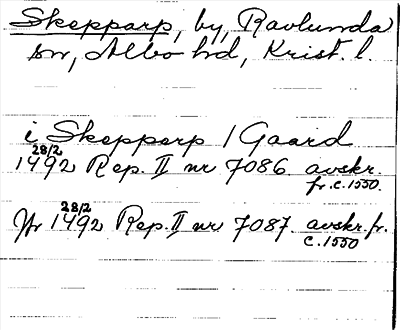 Skepparp, by, Ravlunda
sn, Albo hd, Krist. l.
i Skepperp / Gaard
28/2
1492 Rep. II nr 7086 avskr.
fr. c. 1550.
28/2
1492 Rep. II nr 7087. avskr. fr.
c. 1550